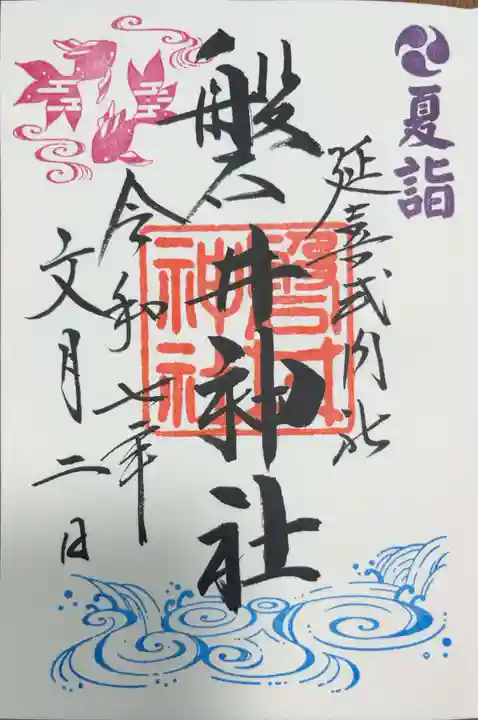 夏詣
延喜式内社
磐井神社
磐井
神社
令和七年
文月二日